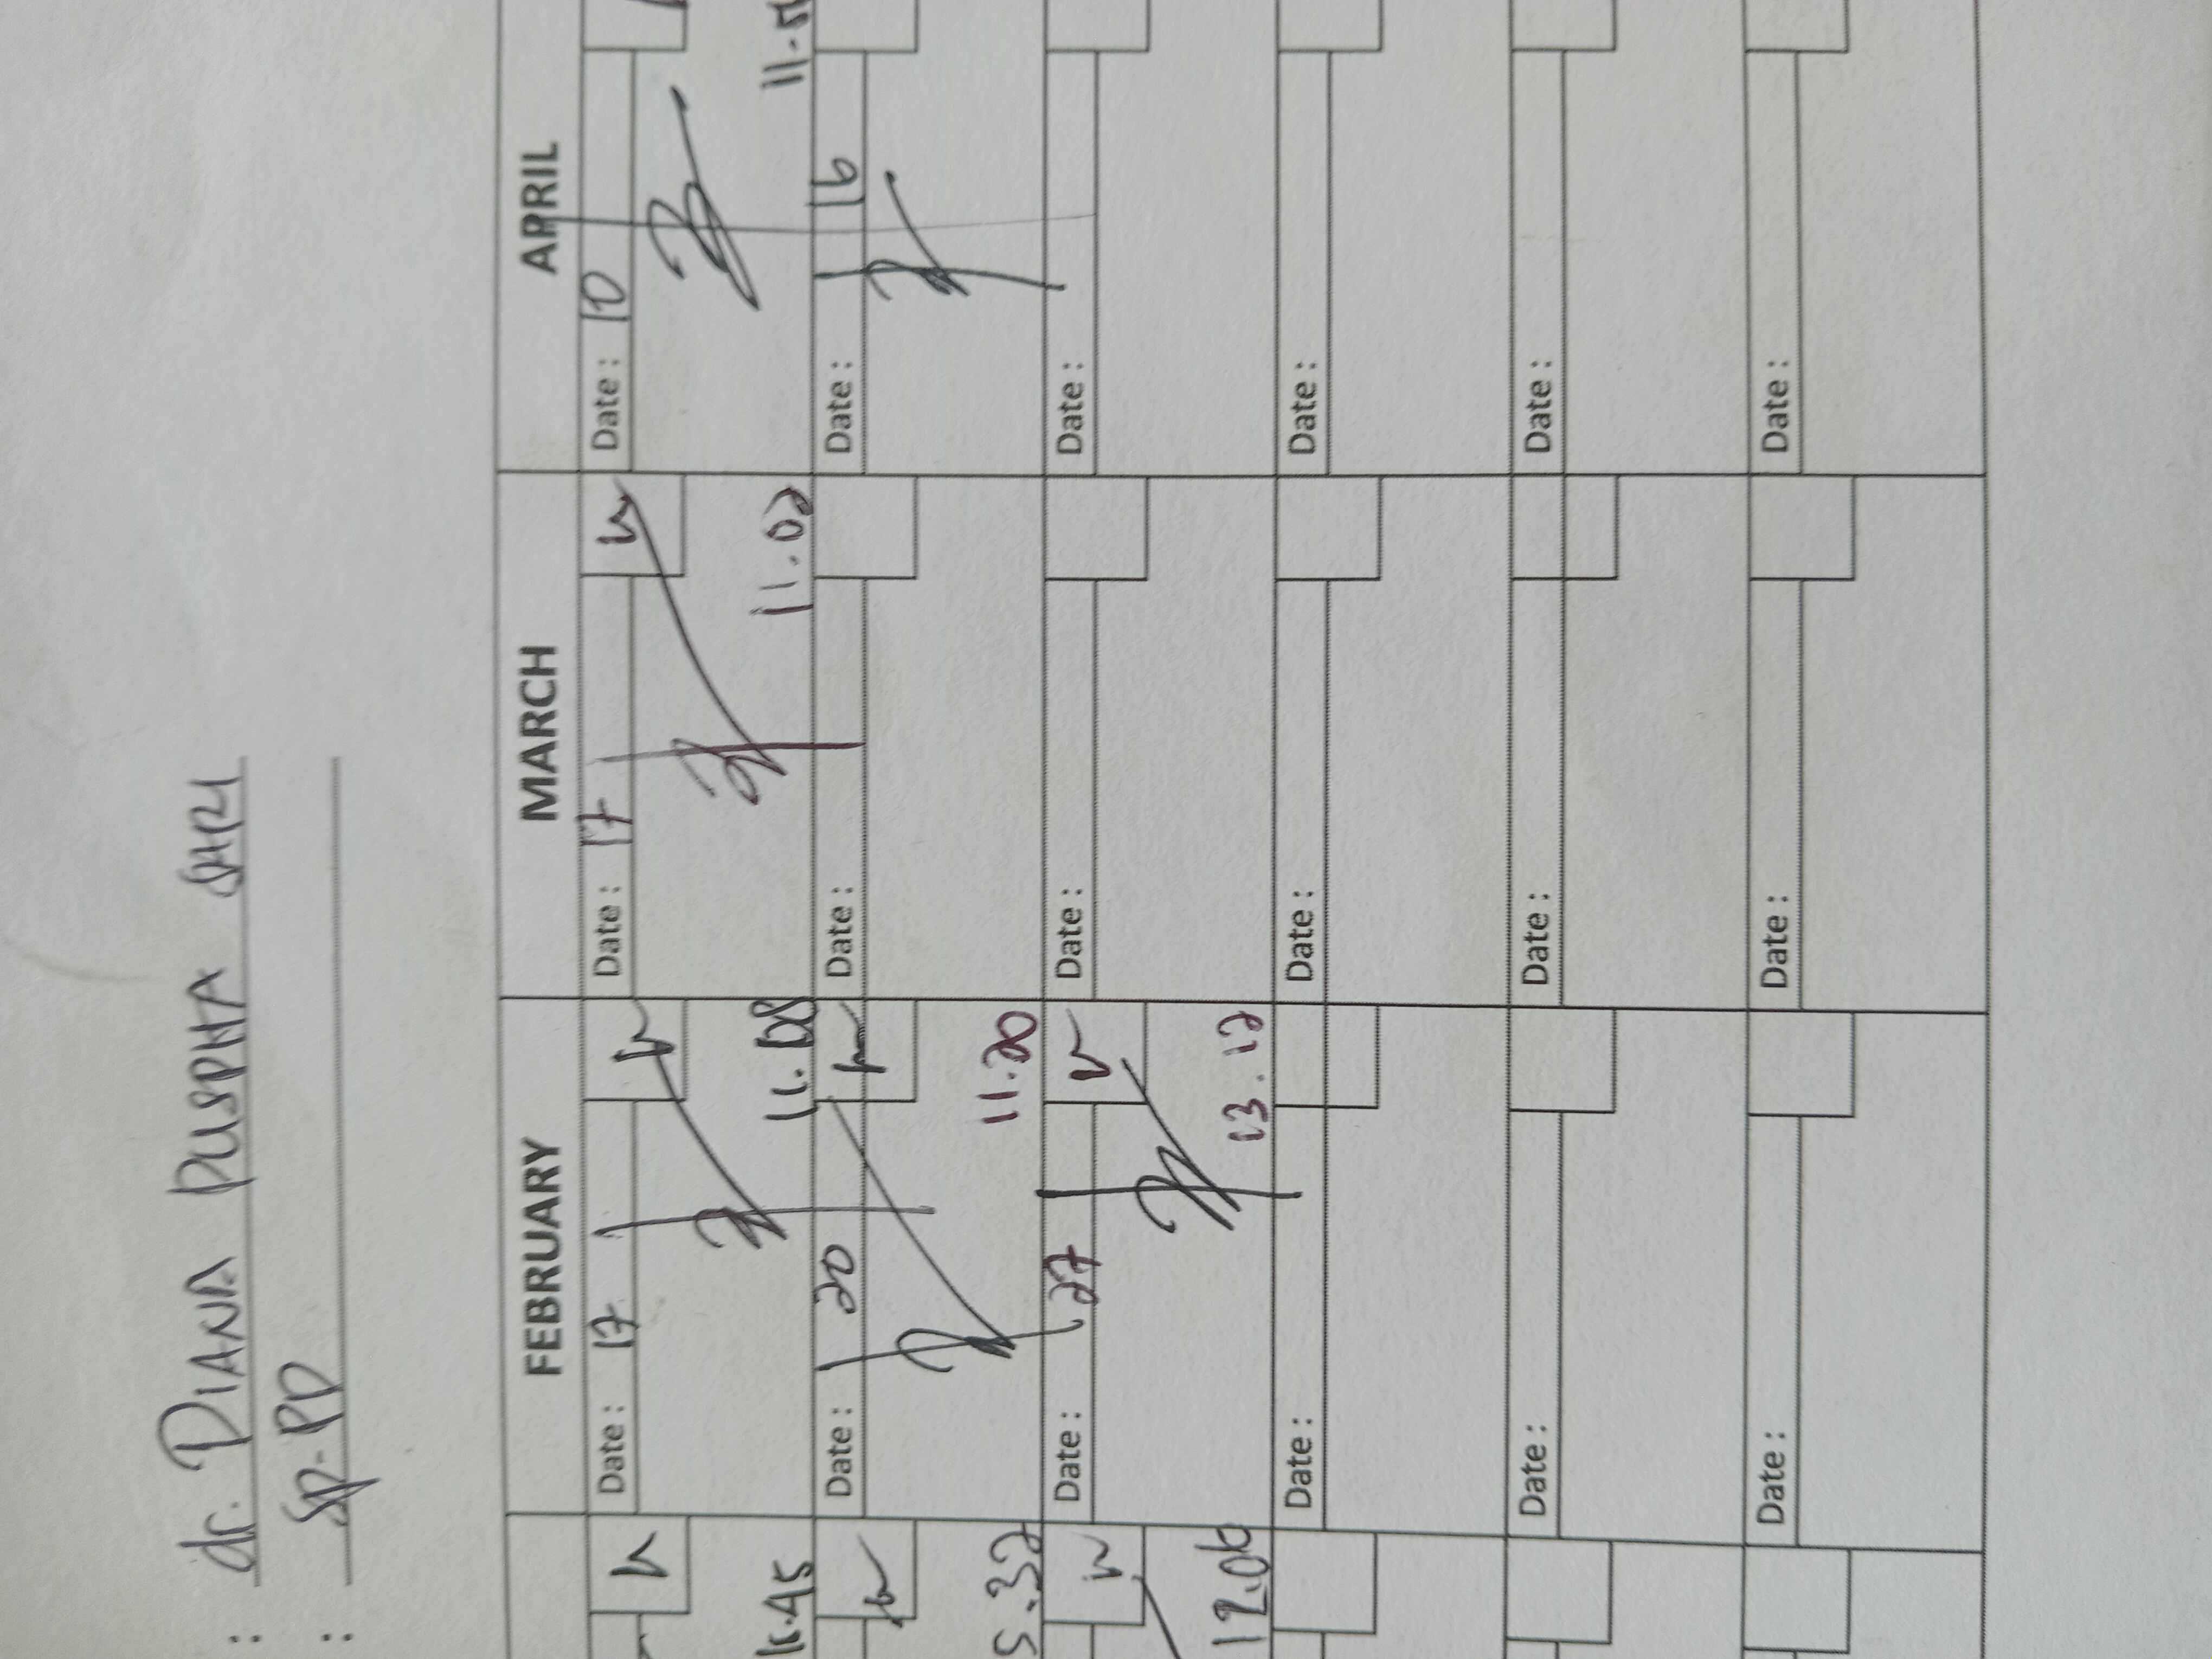 : dr. DIANA PUSPHA SARI
: Sp-PD
FEBRUARY MARCH APRIL
Date : 17 Date : 17 Date : 10
11.45 11.08 11.02
Date : 20 Date : Date : 16
5.32 11.20
Date : 27 Date : Date :
12.06 13.12
Date : Date : Date :
Date : Date : Date :
Date : Date : Date :